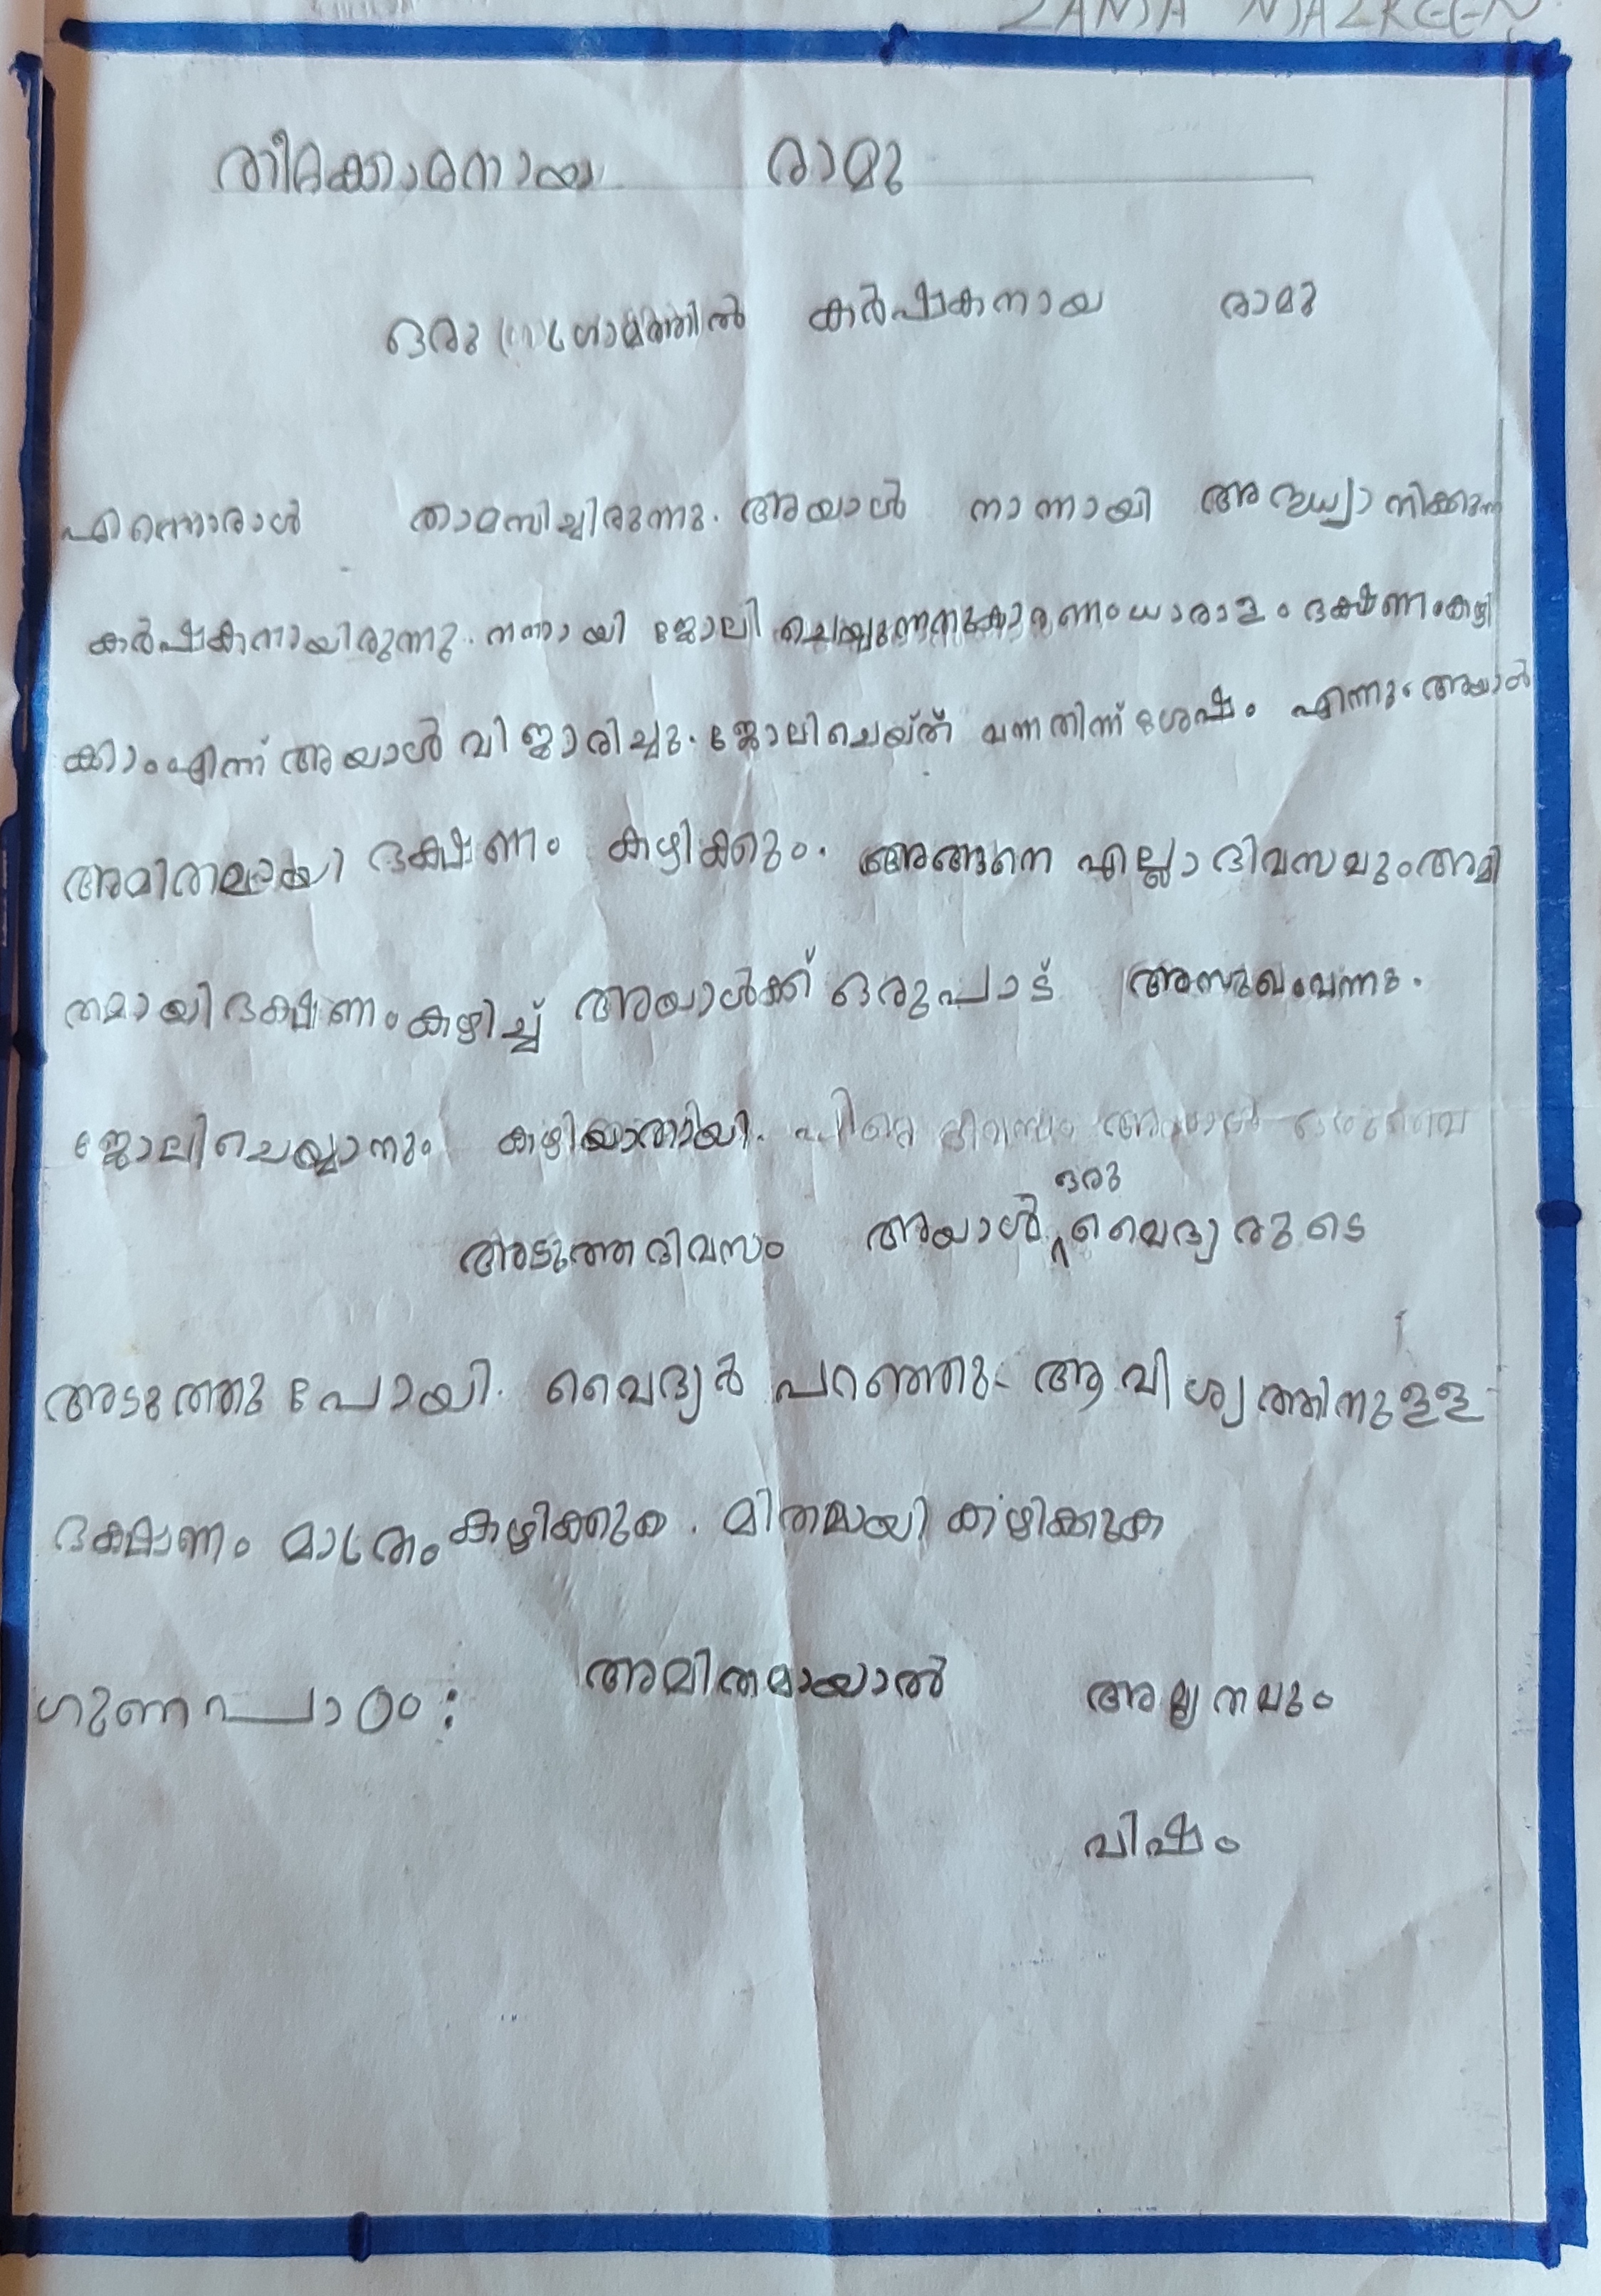 ZANJA NAZREEN
തീറ്റക്കാരനായ രാമു
ഒരു ഗ്രാമത്തിൽ കർഷകനായ രാമു
എന്നൊരാൾ താമസിച്ചിരുന്നു. അയാൾ നാന്നായി അദ്ധ്വാനിക്കുന്ന
കർഷകനായിരുന്നു. നന്നായി ജോലി ചെയ്യുന്നനുകാരണം ധാരാളം ഭക്ഷണം കഴി
ക്കാം എന്ന് അയാൾ വിജാരിച്ചു. ജോലി ചെയ്ത് വന്നതിന് ശേഷം എന്നും അയാൾ
അമിതമായി ഭക്ഷണം കഴിക്കും. അങ്ങനെ എല്ലാ ദിവസവും അമി
തമായി ഭക്ഷണം കഴിച്ച് അയാൾക്ക് ഒരുപാട് അസുഖം വന്നു.
ജോലി ചെയ്യാനും കഴിയാതായി.
അടുത്ത ദിവസം അയാൾ ഒരു വൈദ്യരുടെ
അടുത്തു പോയി. വൈദ്യർ പറഞ്ഞു:- ആവിശ്യത്തിനുളള
ഭക്ഷണം മാത്രം കഴിക്കുക. മിതമായി കഴിക്കുക
ഗുണപാഠം: അമിതമായാൽ അമൃതവും
വിഷം